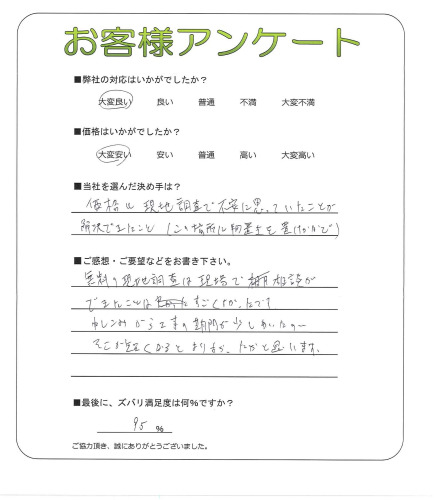 お客様アンケート
■弊社の対応はいかがでしたか？
大変良い 良い 普通 不満 大変不満
■価格はいかがでしたか？
大変安い 安い 普通 高い 大変高い
■当社を選んだ決め手は？
価格と現地調査で不安に思っていたことが
解決できたこと（この場所に物置きを置けるかなど）
■ご感想・ご要望などをお書き下さい。
無料の現地調査は現場で相談が
できたことはすごくよかったです
申しこみから工事の期間が少し長いため
そこが短くなるとよりよかったかと思います。
■最後に、ズバリ満足度は何%ですか？
95 %
ご協力頂き、誠にありがとうございました。